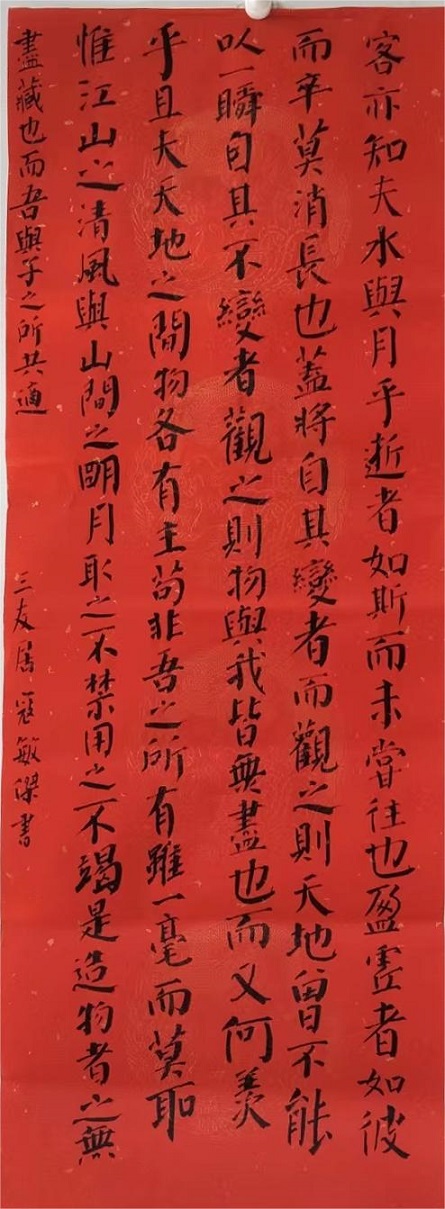 客亦知夫水與月乎逝者如斯而未嘗往也盈虛者如彼
而卒莫消長也蓋將自其變者而觀之則天地曾不能
以一瞬自其不變者觀之則物與我皆無盡也而又何羨
乎且夫天地之間物各有主苟非吾之所有雖一毫而莫取
惟江山之清風與山間之明月取之不禁用之不竭是造物者之無
盡藏也而吾與子之所共適
三友居寇敏傑書